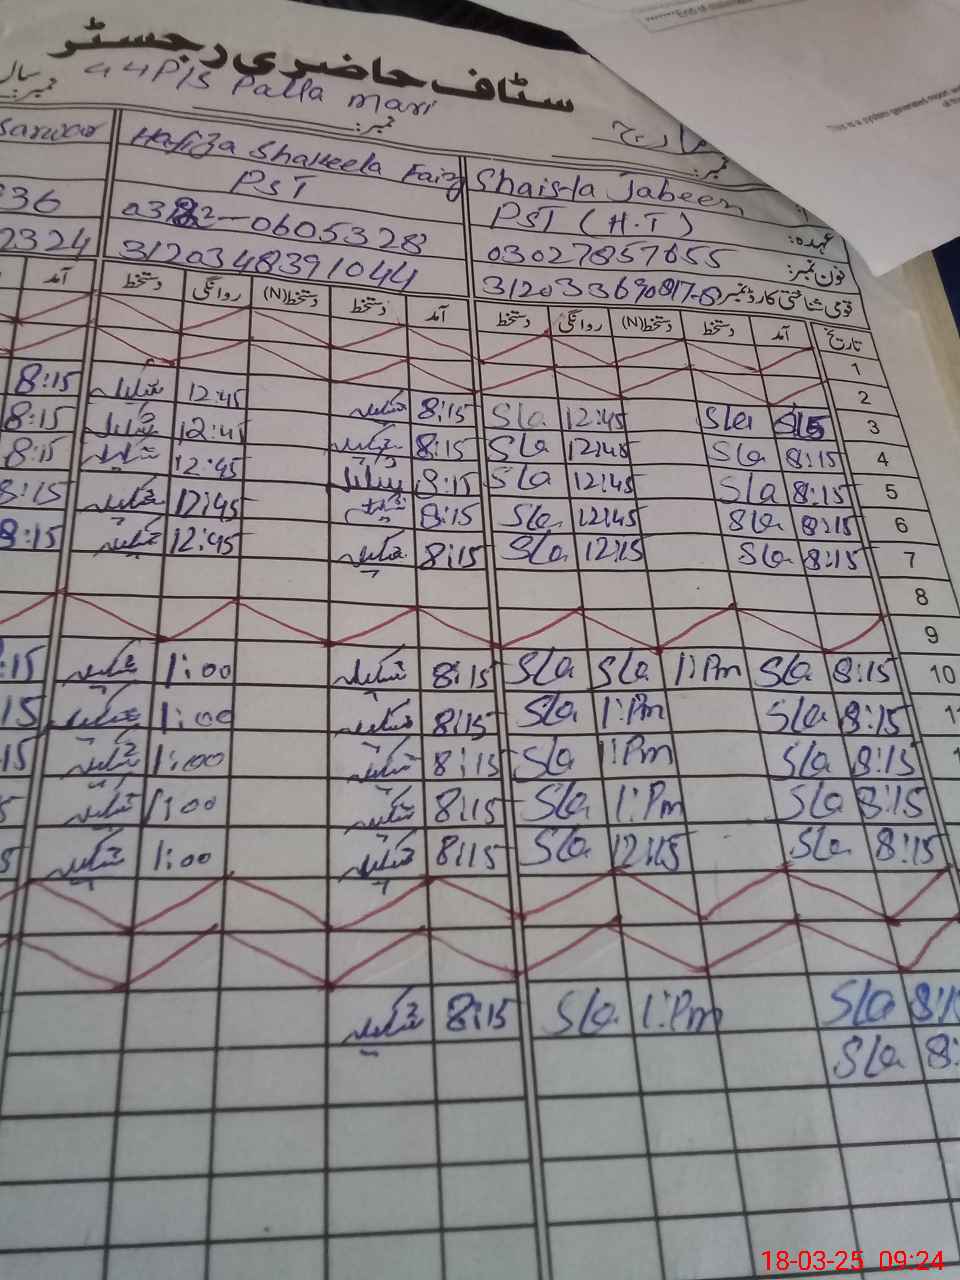 سٹاف حاضری رجسٹر
44 P/S Palla mari
نمبر:
Sarwar Hafiza Shakeela Faiz Shaista Jabeen
PST PST (H.T) عہدہ:
36 0605328 03027857655 فون نمبر:
2324 3120348391044 قومی شناختی کارڈ نمبر
آمد دستخط روانگی دستخط(N) دستخط آمد دستخط روانگی دستخط(N) دستخط آمد تاریخ
1
2
8:15 شکیلہ 12:45 شکیلہ 8:15 Sla 12:45 Sla 8:15 3
8:15 شکیلہ 12:45 شکیلہ 8:15 Sla 12:45 Sla 8:15 4
8:15 شکیلہ 12:45 شکیلہ 8:15 Sla 12:45 Sla 8:15 5
8:15 شکیلہ 12:45 شکیلہ 8:15 Sla 12:45 Sla 8:15 6
8:15 شکیلہ 12:45 شکیلہ 8:15 Sla 12:15 Sla 8:15 7
8
9
:15 شکیلہ 1:00 شکیلہ 8:15 Sla Sla 1:Pm Sla 8:15 10
15 شکیلہ 1:00 شکیلہ 8:15 Sla 1:Pm Sla 8:15 1
15 شکیلہ 1:00 شکیلہ 8:15 Sla 1:Pm Sla 8:15
5 شکیلہ 1:00 شکیلہ 8:15 Sla 1:Pm Sla 8:15
5 شکیلہ 1:00 شکیلہ 8:15 Sla 12:15 Sla 8:15
شکیلہ 8:15 Sla 1:Pm Sla 8:1
Sla 8:
18-03-25 09:24